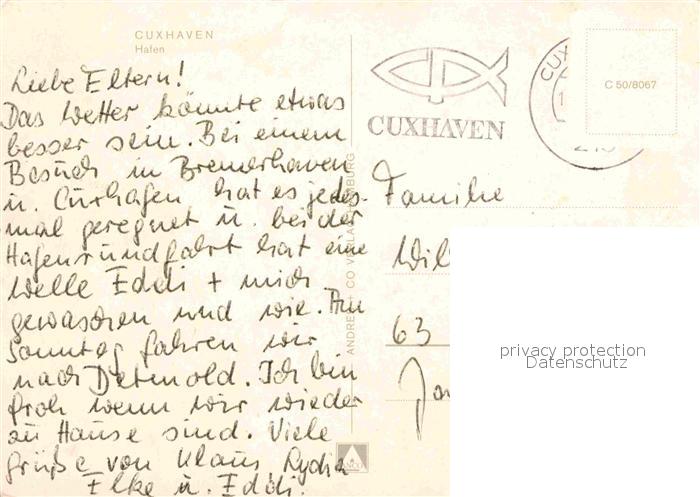 CUXHAVEN
Hafen
Liebe Eltern!
Das Wetter könnte etwas
besser sein. Bei einem
Besuch in Bremerhaven
u. Cuxhafen hat es jedes-
mal geregnet u. bei der
Hafenrundfahrt hat eine
Welle Eddi + mich
gewaschen und wie. Am
Sonntag fahren wir
nach Detmold. Ich bin
froh wenn wir wieder
zu Hause sind. Viele
Grüße von Klaus Lydia
Elke u. Eddi.
CUXHAVEN
CUX
C 50/8067
Familie
Wil
63
privacy protection
Datenschutz